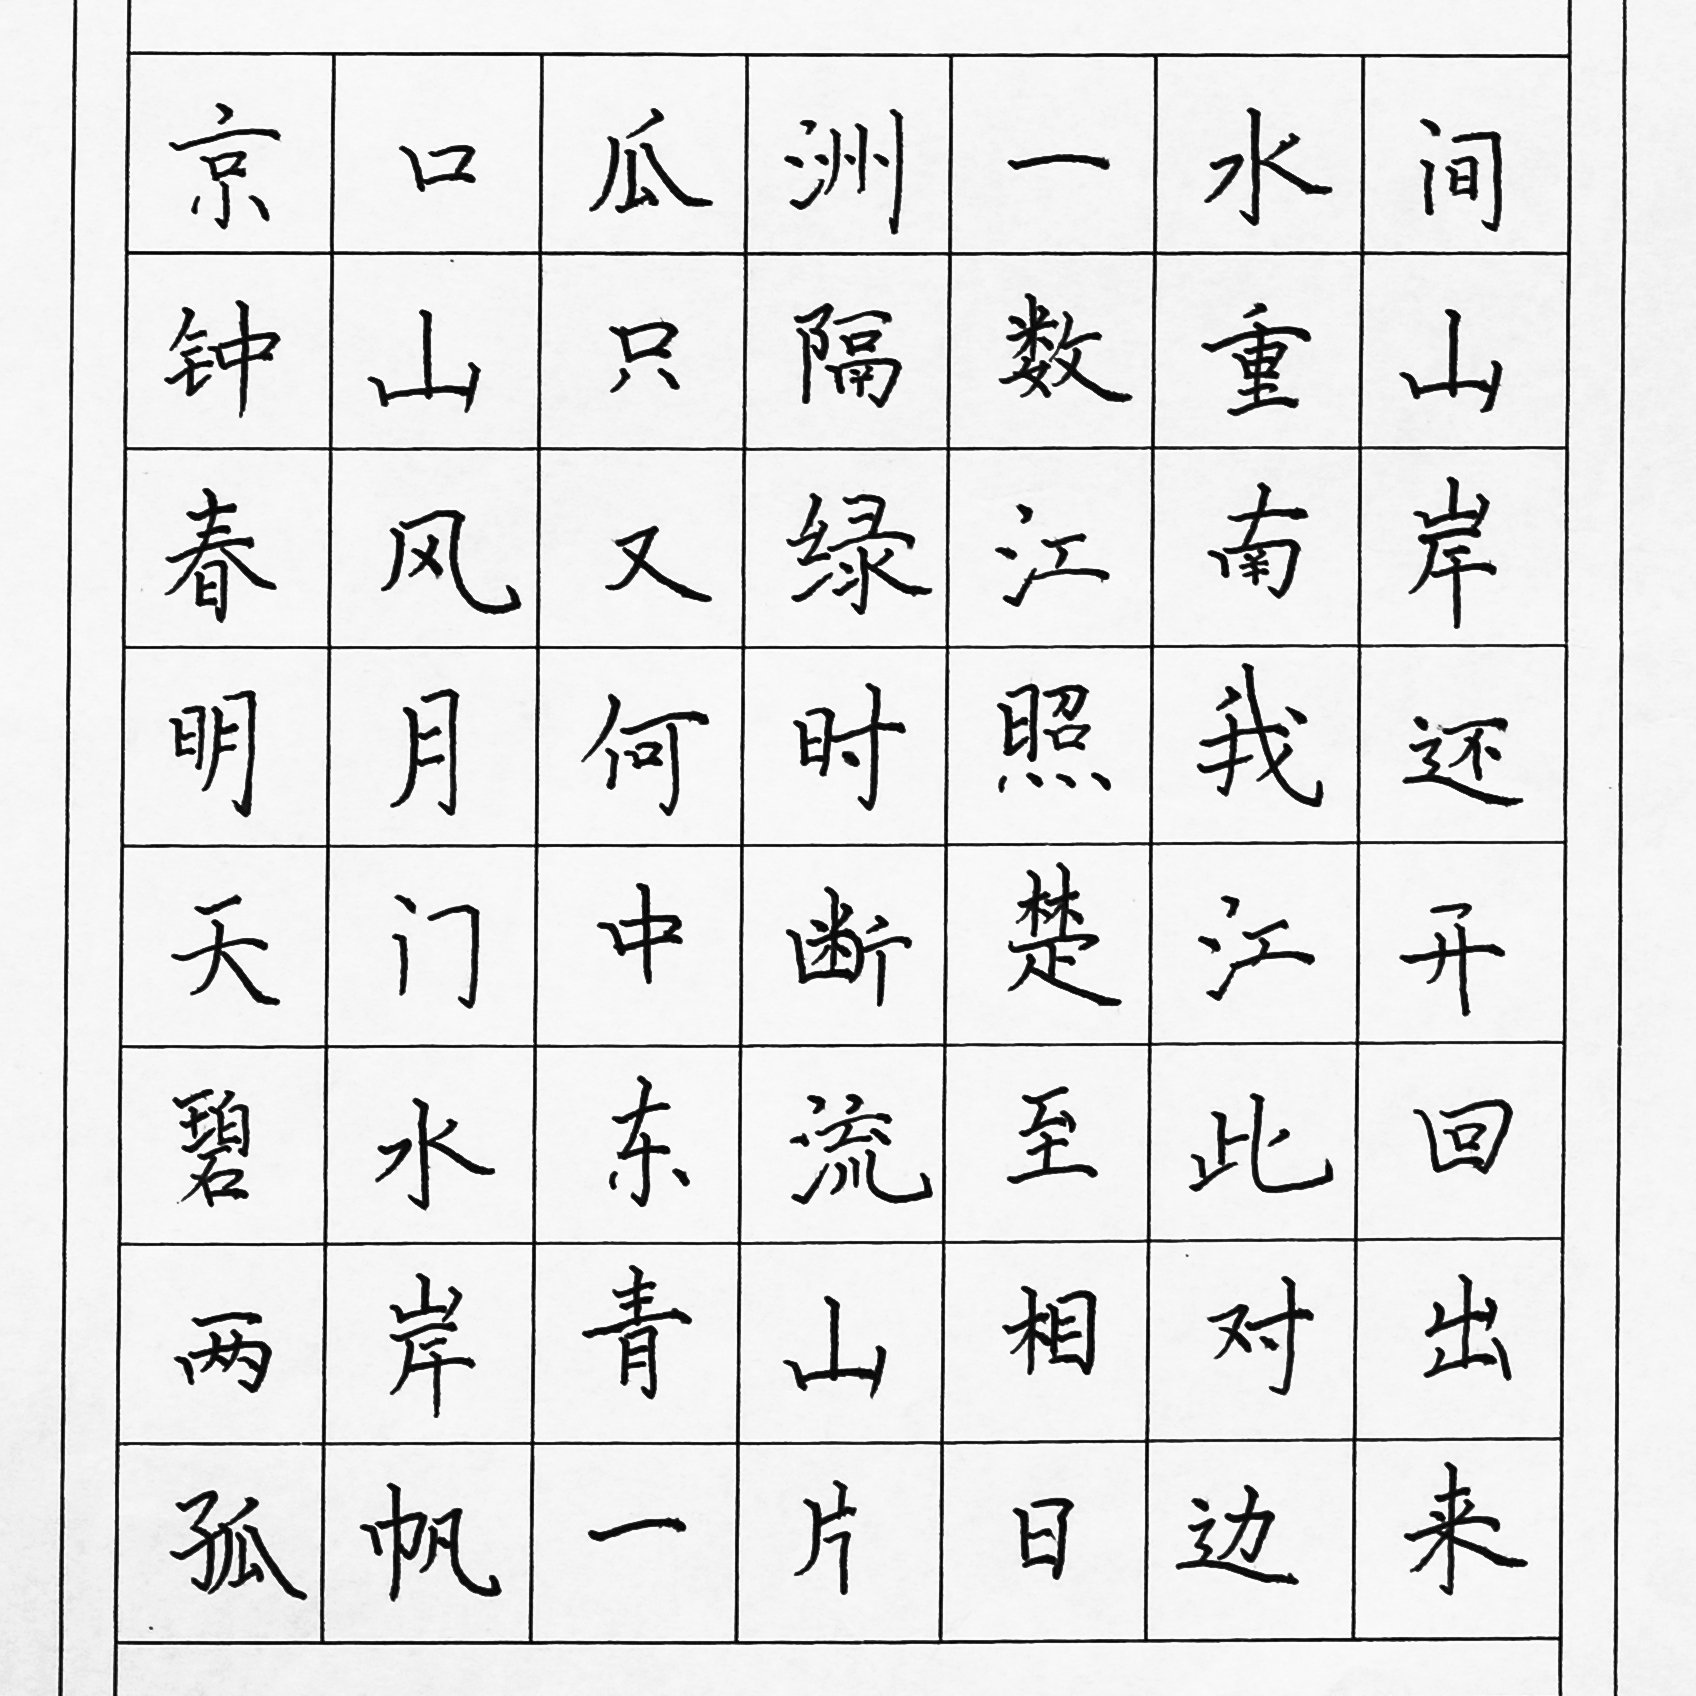 京口瓜洲一水间
钟山只隔数重山
春风又绿江南岸
明月何时照我还
天门中断楚江开
碧水东流至此回
两岸青山相对出
孤帆一片日边来